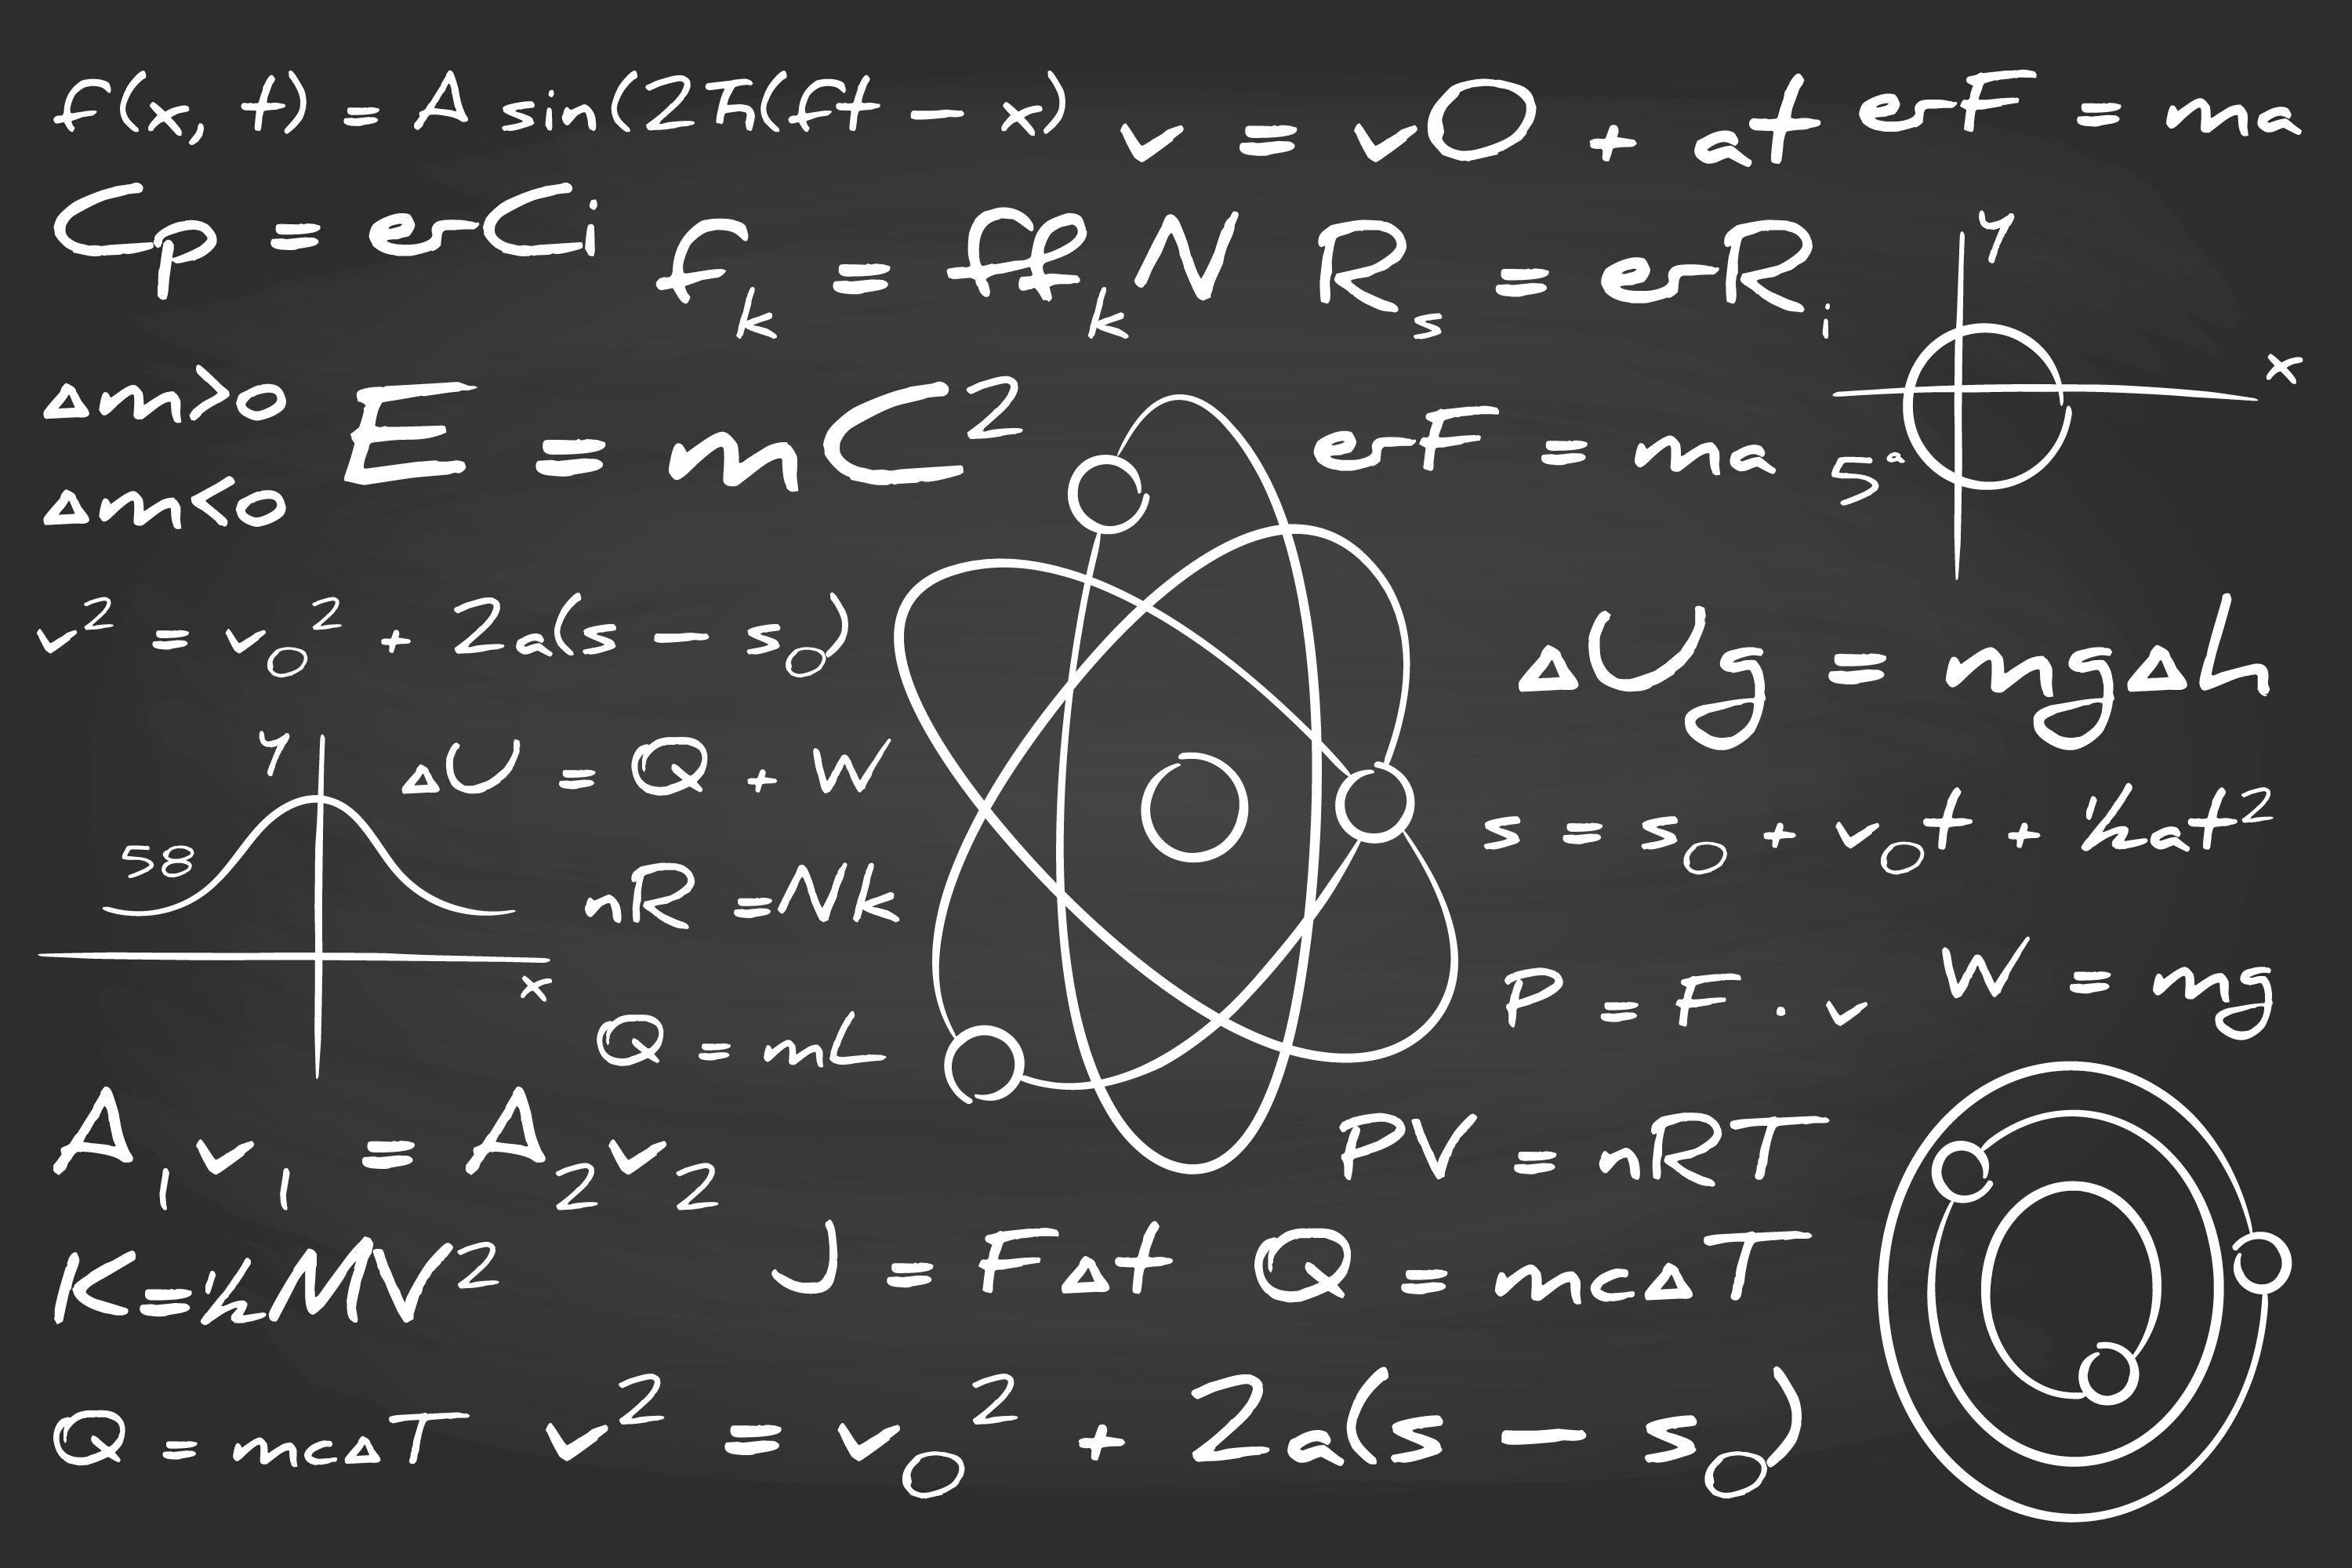 f(x, t) = A sin(2π(ft − x) v = v0 + at erF = ma
Cp = erCi fₖ = ffₖN Rₛ = erRᵢ y
x
Δm>0 E = mC² erF = ma 5ᵃ
Δm<0
v² = v₀² + 2a(s − s₀) ΔUg = mgΔh
y ΔU = Q + W s = s₀ + v₀t + ½at²
58 nR =Nk
x P = F · v W = mg
Q = mL
A₁v₁ = A₂v₂ PV = nRT
K=½MV² J = FΔt Q = mcΔT
Q = mcΔT v² = v₀² + 2a(s − s₀)